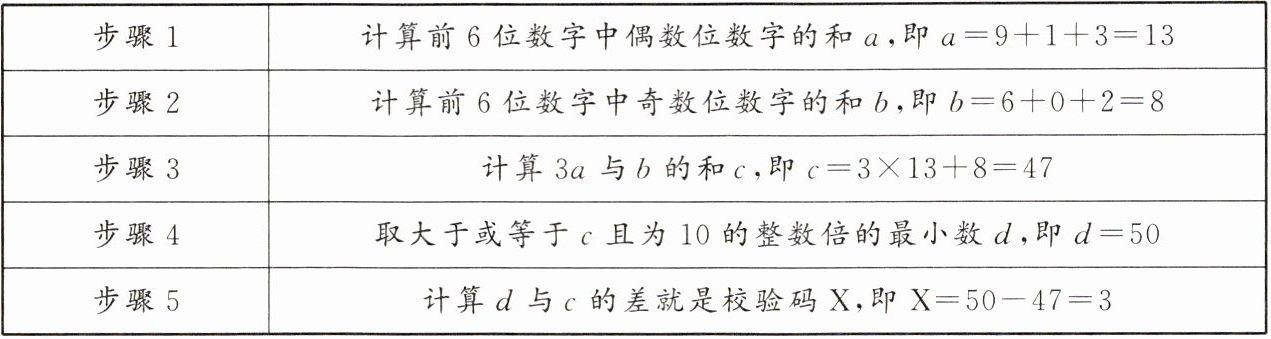 步骤 1 计算前 6 位数字中偶数位数字的和 a,即 a=9+1+3=13
步骤 2 计算前 6 位数字中奇数位数字的和 b,即 b=6+0+2=8
步骤 3 计算 3a 与 b 的和 c,即 c=3×13+8=47
步骤 4 取大于或等于 c 且为 10 的整数倍的最小数 d,即 d=50
步骤 5 计算 d 与 c 的差就是校验码 X,即 X=50-47=3